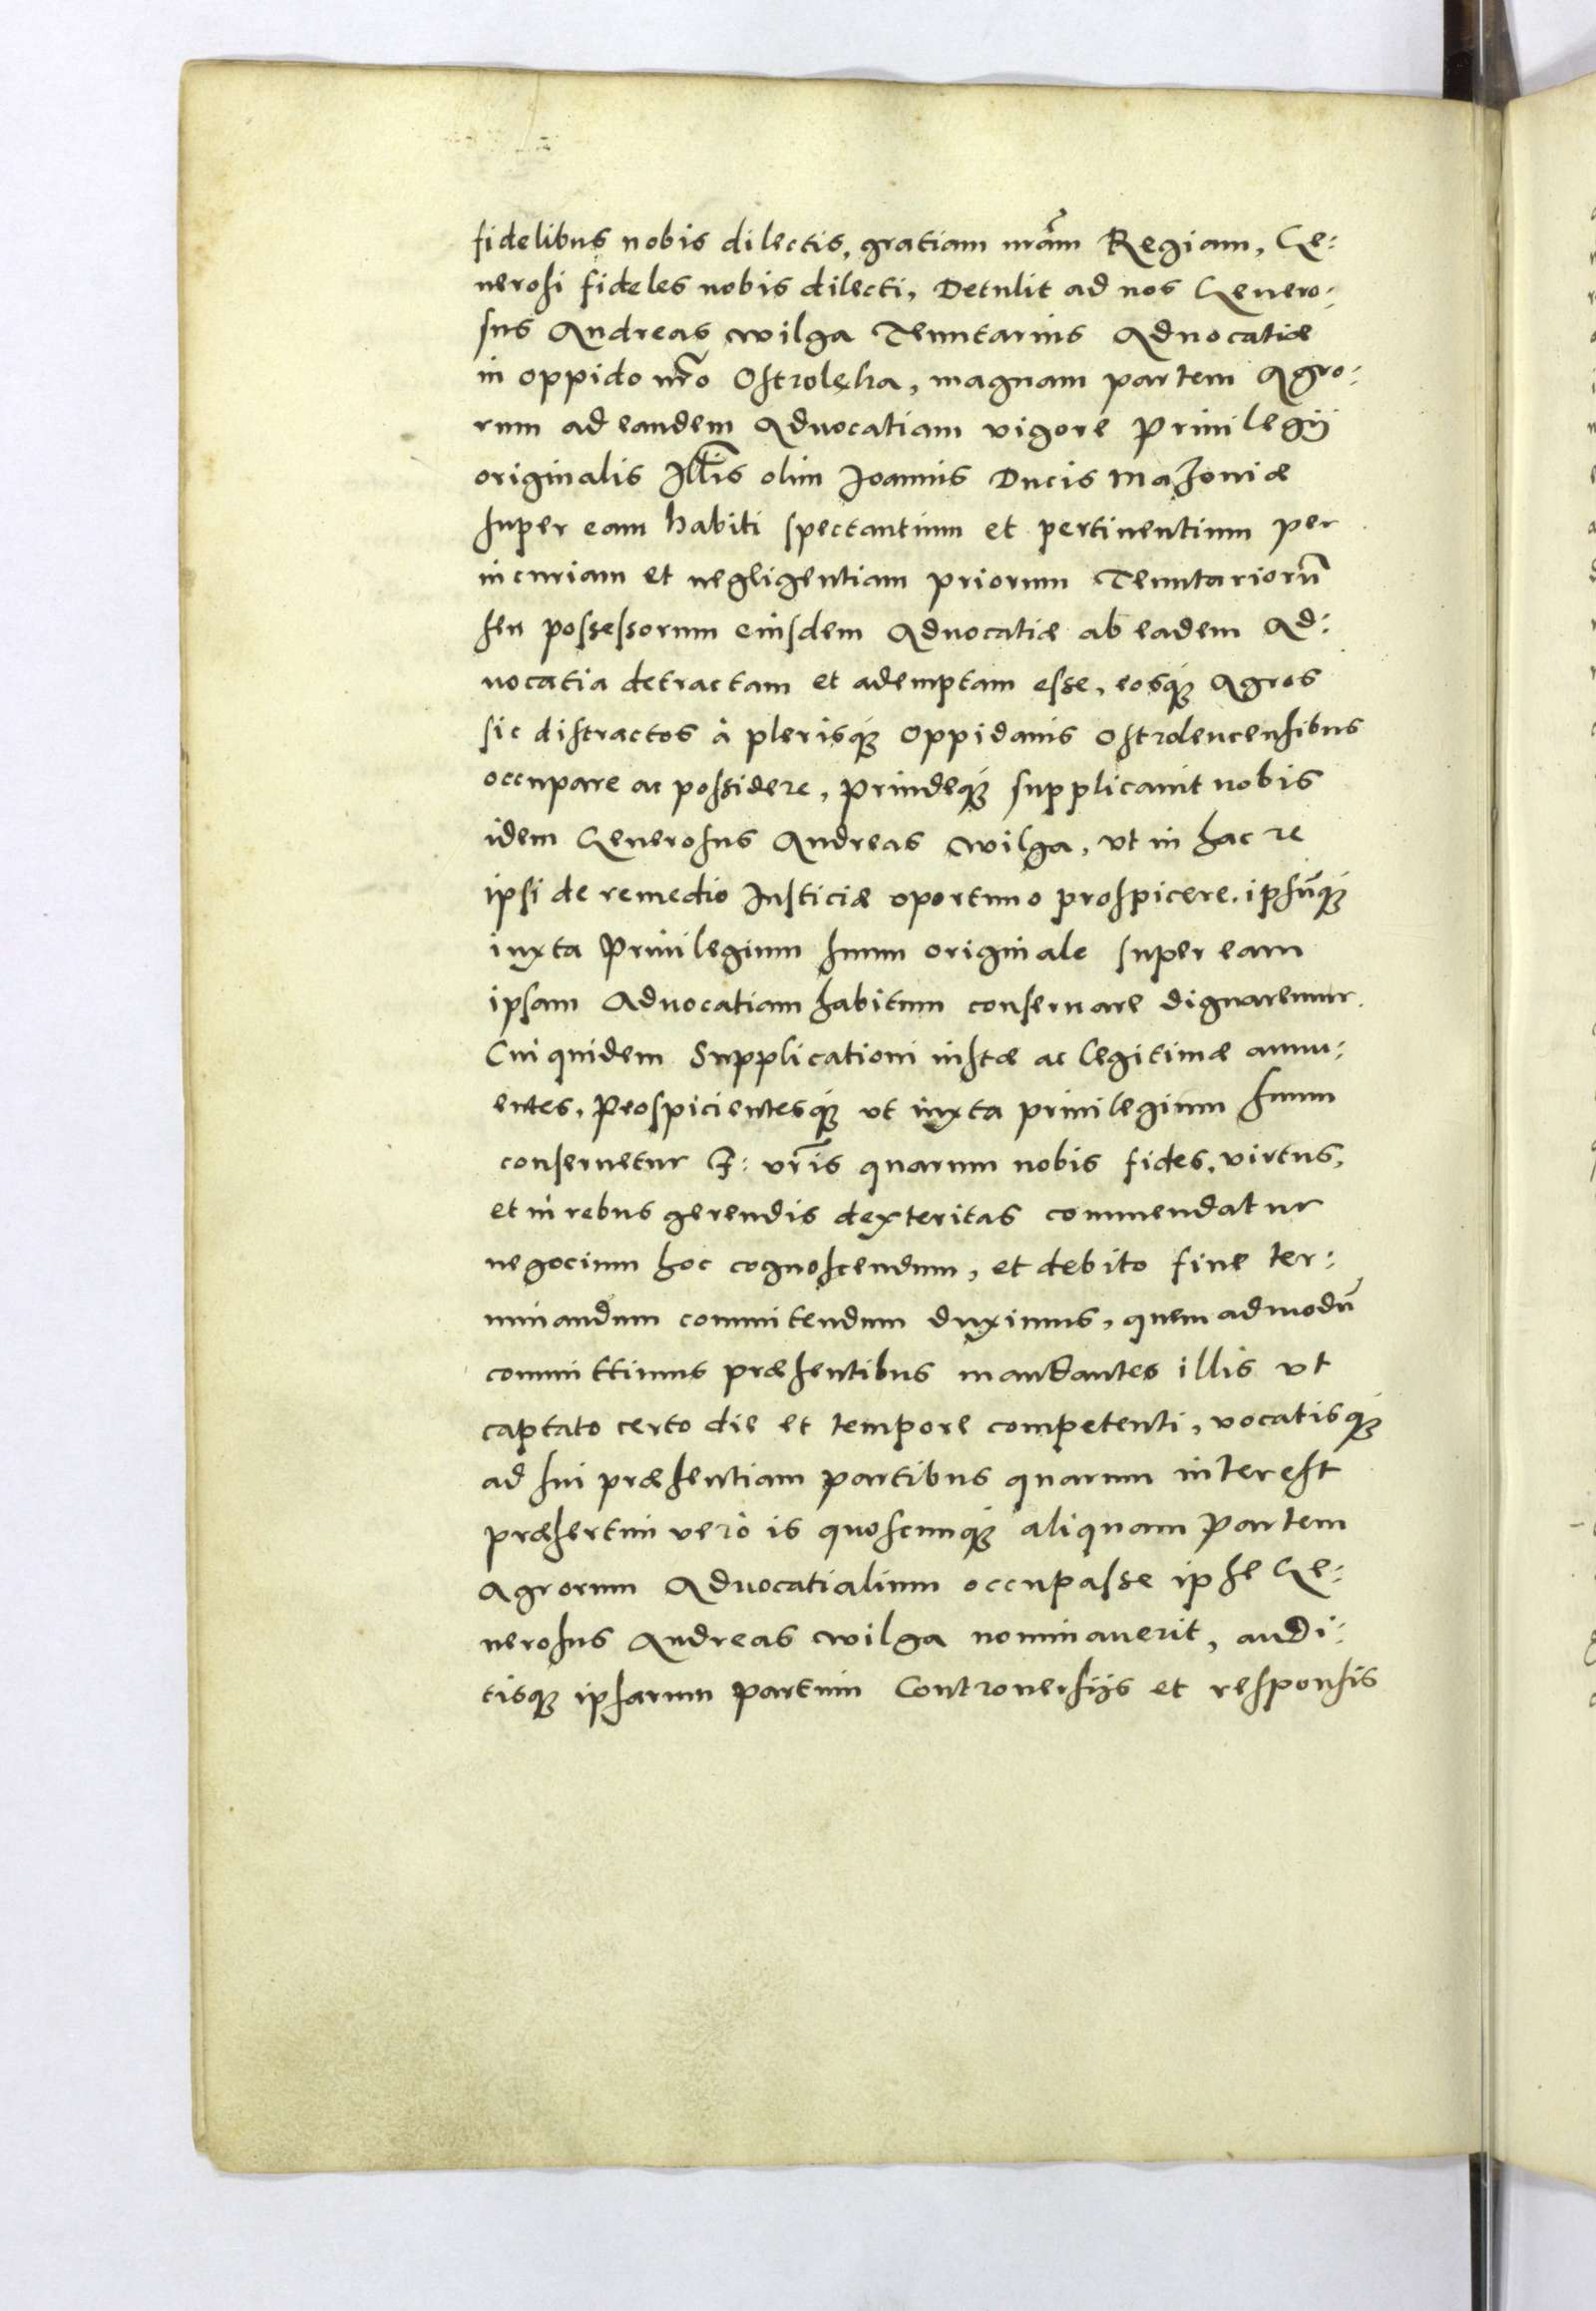 fidelibus nobis dilectis, gratiam nrãm Regiam, Ge:
nerosi fideles nobis dilecti, Detulit ad nos Genero:
sus Andreas wilga Tenutarius Aduocatiæ
in oppido nrõ Ostrolęka, magnam partem Agro:
rum ad eandem Aduocatiam vigore Priuilegij
originalis Illĩs olim Joannis Ducis Mazouiæ
super eam habiti spectantium et pertinentium per
incuriam et negligentiam priorum Tenutariorũ
seu possessorum eiusdem Aduocatiæ ab eadem Ad:
uocatia detractam et ademptam esse, eosq́ Agros
sic distractos à plerisq́ oppidanis Ostrolencensibus
occupare ac possidere, Prindeq́ supplicauit nobis
idem Generosus Andreas wilga, vt in hac re
ipsi de remedio Iusticiæ oportuno prospicere, ipsũq́
iuxta Priuilegium suum originale super eam
ipsam Aduocatiam habitum conseruare dignaremur.
Cui quidem Supplicationi iustæ ac legitimæ annu:
entes, Prospicientesq́ vt iuxta priuilegium suum
conseruetur F: vrĩs quarum nobis fides, virtus,
et in rebus gerendis dexteritas commendatur
negocium hoc cognoscendum, et debito fine ter:
minandum commitendum duximus, quemadmodũ
committimus præsentibus mandantes illis vt
captato certo die et tempore competenti, vocatisq́
ad sui præsentiam partibus quarum interest
præsertim verò is quoscunq́ aliquam partem
Agrorum Aduocatialium occupasse ipse Ge:
nerosus Andreas wilga nominauerit, audi:
tisq́ ipsarum partium Controuersijs et responsis